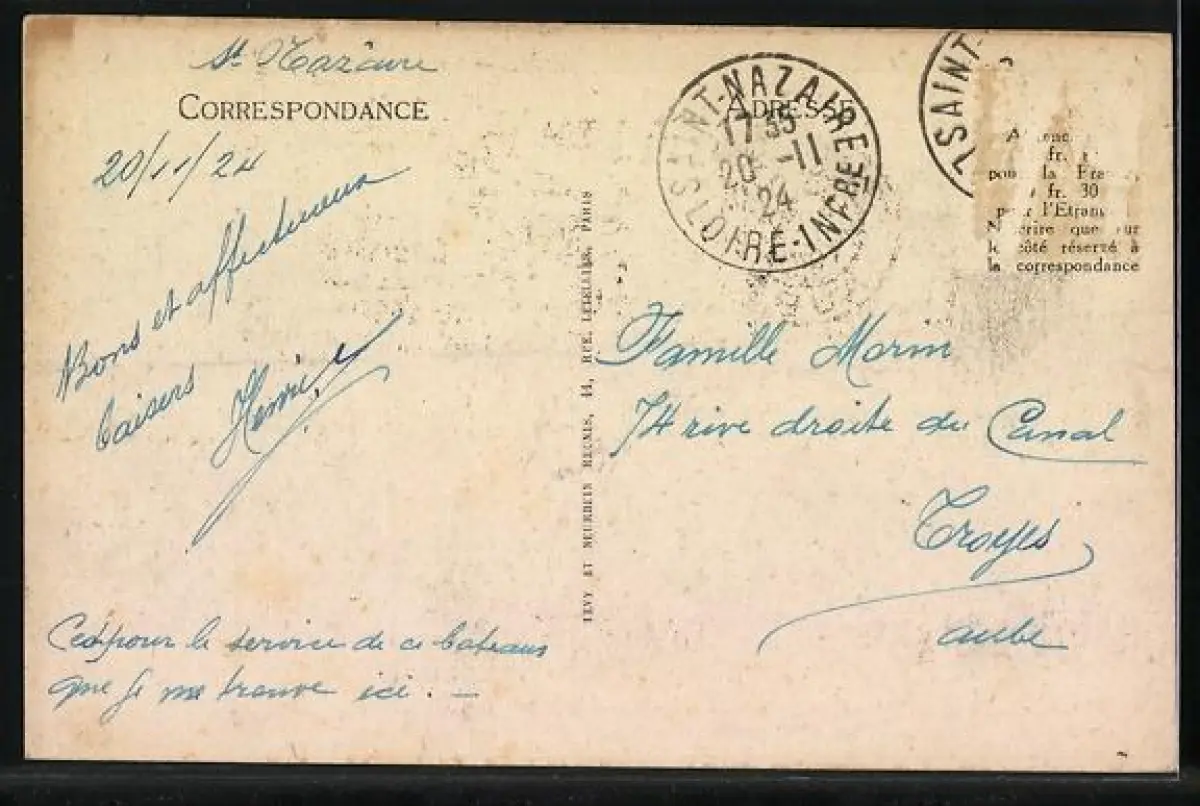 St Nazaire
CORRESPONDANCE
20/11/24
Bons et affectueux
baisers Henri
C'est pour le service de ce bateaux
que je me trouve ici. —
LEVY ET NEURDEIN REUNIS, 44, RUE LETELLIER, PARIS
ADRESSE
SAINT-NAZAIRE
17 35
20 -11
24
LOIRE-INFRE
SAINT-
fr.
la
fr. 30
l'Etran
que sur
le côté réservé à
la correspondance
Famille Morin
74 rive droite du Canal
Troyes
aube